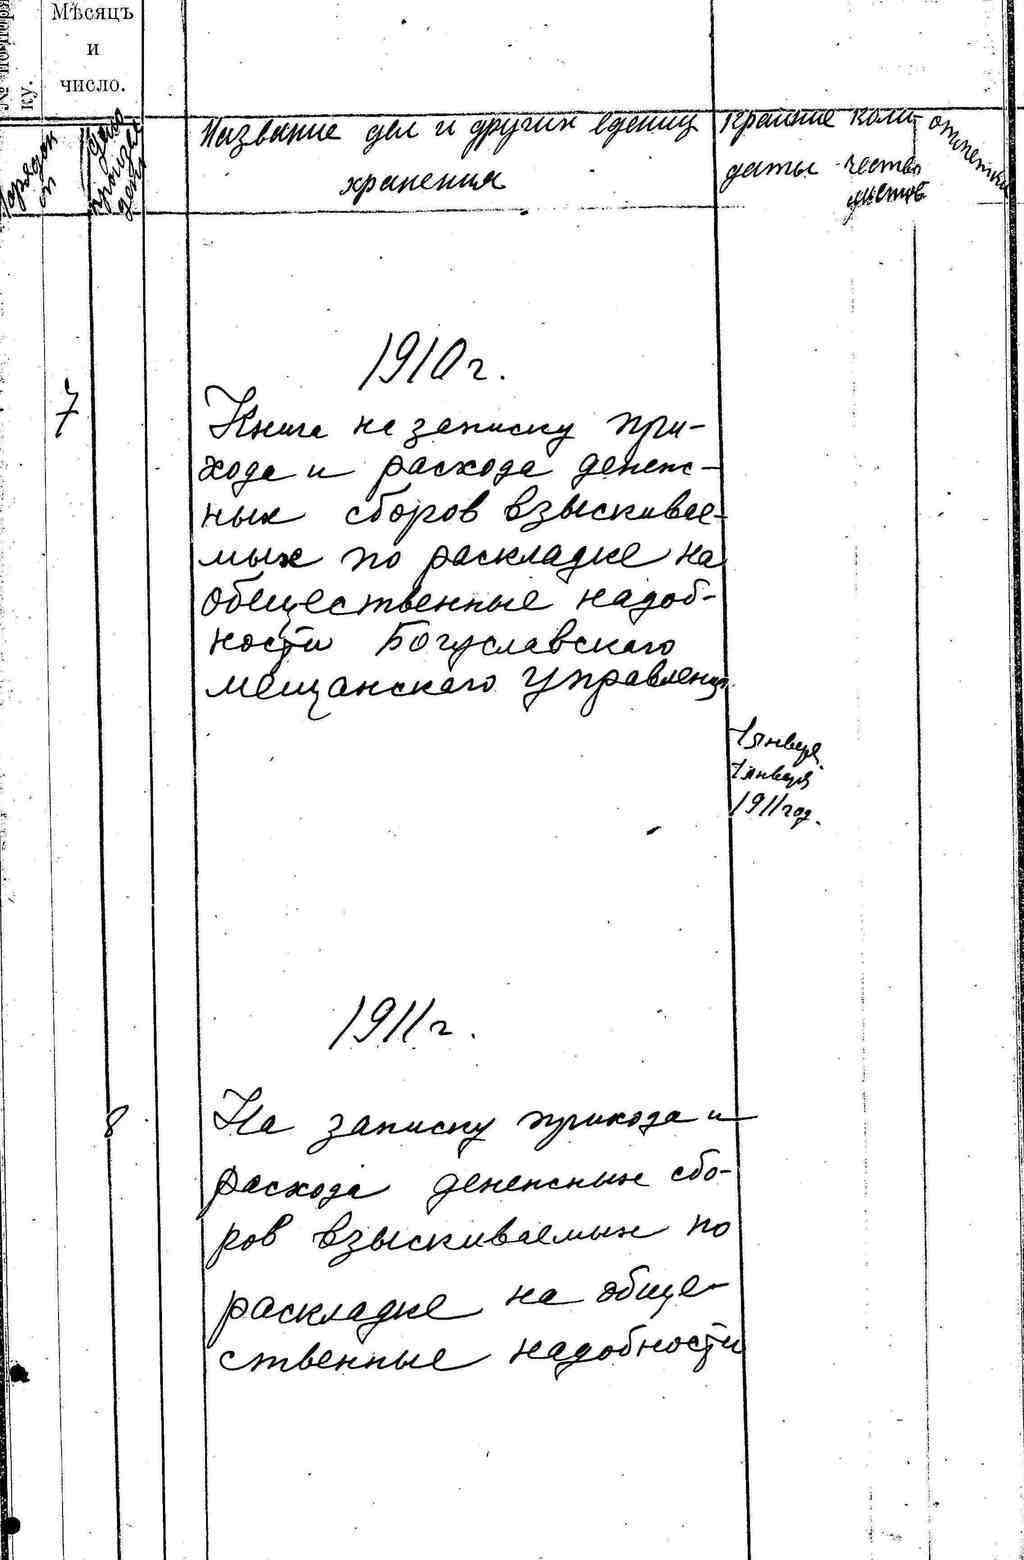 № по поряд
ку.
Мѣсяцъ
и
число.
Название дел и других едениц
хранения
крайние
даты
коли-
чество
листов
отметки
1910 г.
7
Книга на записку при-
хода и расхода денеж-
ных сборов взыскивае-
мых по раскладке на
общественные надоб-
ности Богуславского
мещанского управления
1 января
1 января
1911 год.
1911 г.
8
На записку прихода и
расхода денежных сбо-
ров взыскиваемых по
раскладке на обще-
ственные надобности